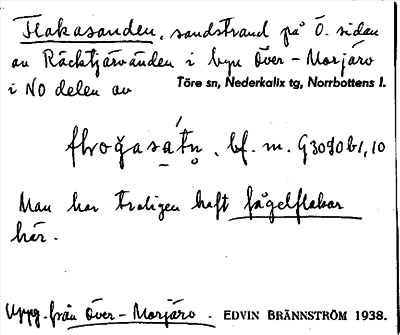 Flakasanden, sandstrand på Ö. sidan
av Räcktjärvänden i byn Över-Morjärv
i NO delen av Töre sn, Nederkalix tg, Norrbottens l.
bf. m. G3090b1,10
Man har troligen haft fågelflakar
här.
Uppg. från Över-Morjärv. EDVIN BRÄNNSTRÖM 1938.